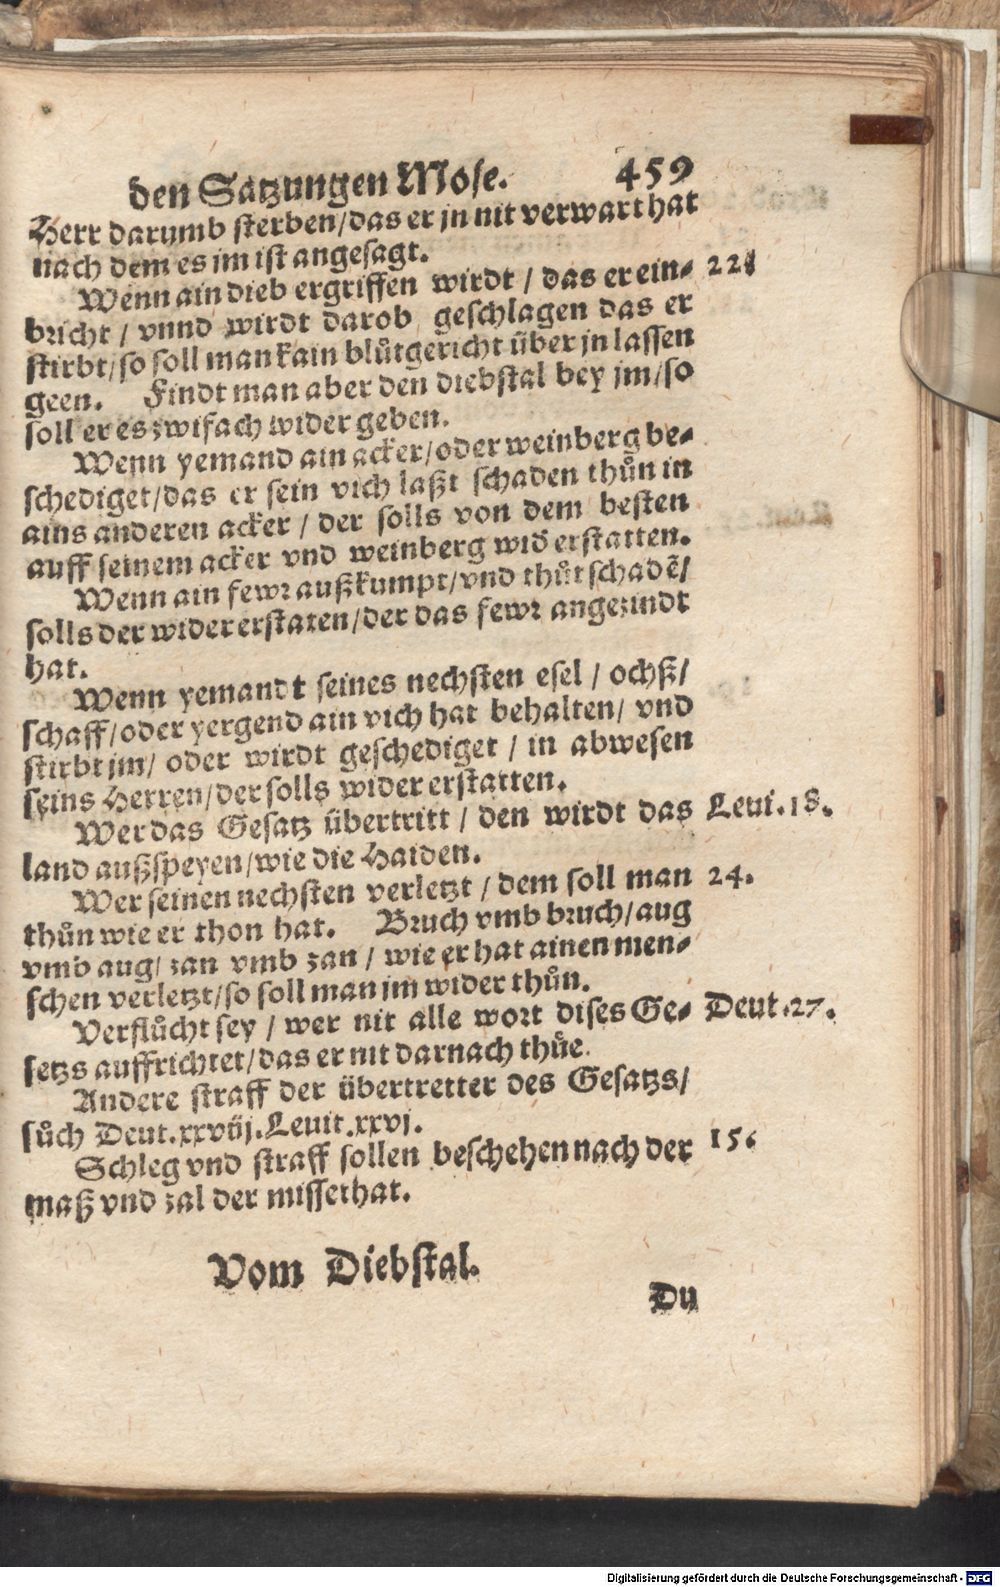 den Satzungen Mose. 459
Herr darumb sterben/das er jn nit verwart hat
nach dem es im ist angesagt.
Wenn ain dieb ergriffen wirdt / das er ein- 22
bricht / vnnd wirdt darob geschlagen das er
stirbt/so soll man kain blůtgericht über jn lassen
geen. Findt man aber den diebstal bey jm/so
soll er es zwifach wider geben.
Wenn yemand ain acker/oder weinberg be-
schediget/das er sein vich laßt schaden thůn in
ains anderen acker / der solls von dem besten
auff seinem acker vnd weinberg wid̃ erstatten.
Wenn ain fewr außkumpt/vnd thůt schadẽ/
solls der wider erstaten/der das fewr angezindt
hat.
Wenn yemandt seines nechsten esel / ochß/
schaff/oder yergend ain vich hat behalten/ vnd
stirbt jm/ oder wirdt geschediget / in abwesen
seins Herren/der solls wider erstatten.
Wer das Gesatz übertritt / den wirdt das Leui.18.
land außspeyen/wie die Haiden.
Wer seinen nechsten verletzt / dem soll man 24.
thůn wie er thon hat. Bruch vmb bruch/aug
vmb aug/ zan vmb zan / wie er hat ainen men-
schen verletzt/so soll man im wider thůn.
Verflůcht sey / wer nit alle wort dises Ge- Deut.27.
setzs auffrichtet/das er nit darnach thůe.
Andere straff der übertretter des Gesatzs/
sůch Deut.xxviij.Leuit.xxvj.
Schleg vnd straff sollen beschehen nach der 15.
maß vnd zal der missethat.
Vom Diebstal.
Du
Digitalisierung gefördert durch die Deutsche Forschungsgemeinschaft - DFG